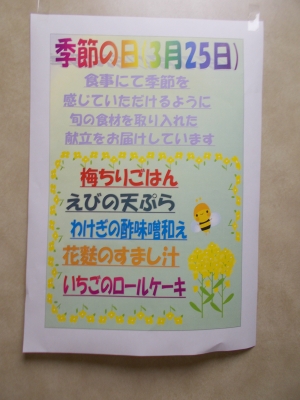 季節の日(3月25日)
食事にて季節を
感じていただけるように
旬の食材を取り入れた
献立をお届けしています
梅ちりごはん
えびの天ぷら
わけぎの酢味噌和え
花麩のすまし汁
いちごのロールケーキ